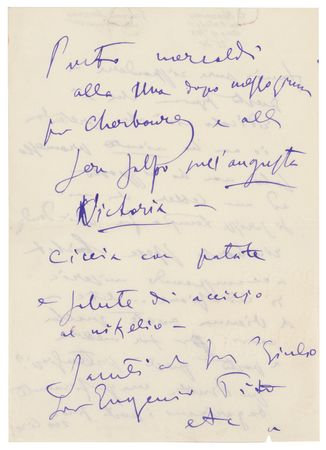 Parto mercoldì
alla una dopo mezzogiorno
per Cherbourg e alla
sera salpo sull'augusta
Victoria –
Ciccia con patate
e salute di acciajo
al nikelio –
Saluti al "Giulio
Eugenio Tito
etc